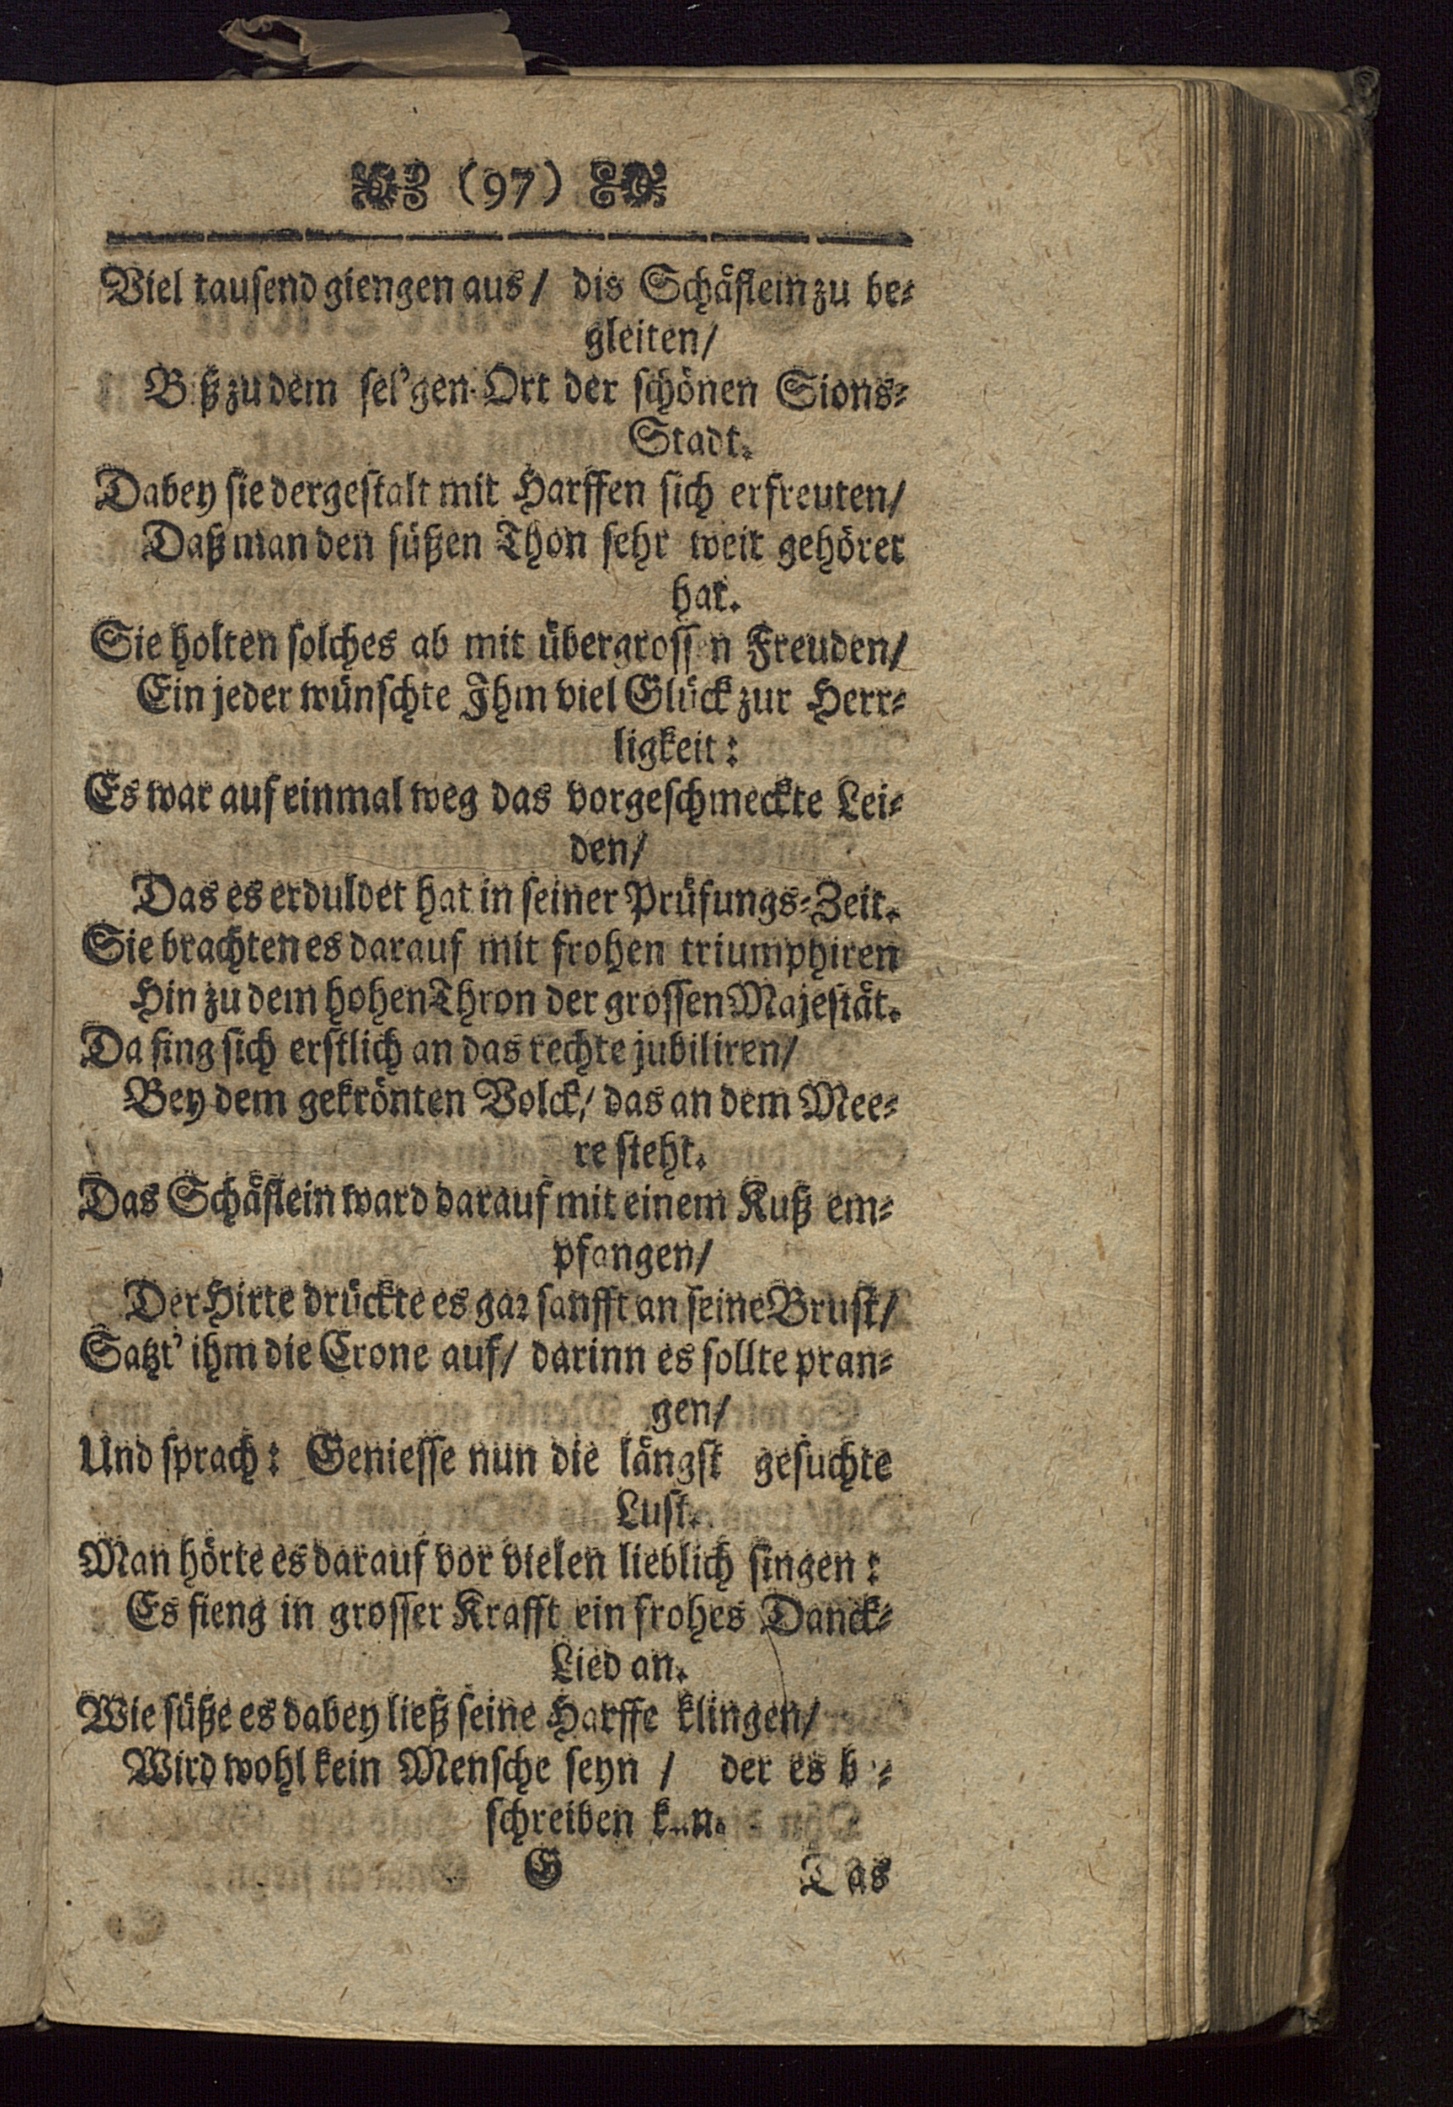 (97)
Viel tausend giengen aus/ dis Schäflein zu be-
gleiten/
Biß zu dem sel'gen Ort der schönen Sions-
Stadt.
Dabey sie dergestalt mit Harffen sich erfreuten/
Daß man den süßen Thon sehr weit gehöret
hat.
Sie holten solches ab mit übergrossen Freuden/
Ein jeder wünschte Ihm viel Glück zur Herr-
ligkeit:
Es war auf einmal weg das vorgeschmeckte Lei-
den/
Das es erduldet hat in seiner Prüfungs-Zeit.
Sie brachten es darauf mit frohen triumphiren
Hin zu dem hohen Thron der grossen Majestät.
Da fing sich erstlich an das rechte jubiliren/
Bey dem gekrönten Volck/ das an dem Mee-
re steht.
Das Schäflein ward darauf mit einem Kuß em-
pfangen/
Der Hirte drückte es gar sanfft an seine Brust/
Satzt' ihm die Crone auf/ darinn es sollte pran-
gen/
Und sprach: Geniesse nun die längst gesuchte
Lust.
Man hörte es darauf vor vielen lieblich singen:
Es fieng in grosser Krafft ein frohes Danck-
Lied an.
Wie süße es dabey ließ seine Harffe klingen/
Wird wohl kein Mensche seyn / der es be-
schreiben kan.
G Das